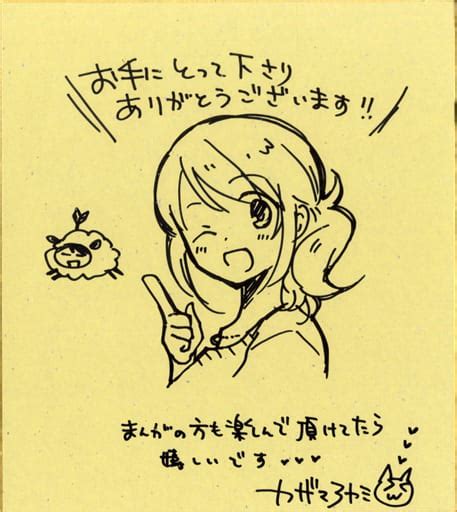 お手にとって下さり
ありがとうございます!!
まんがの方も楽しんで頂けてたら
嬉しいです♥♥♥